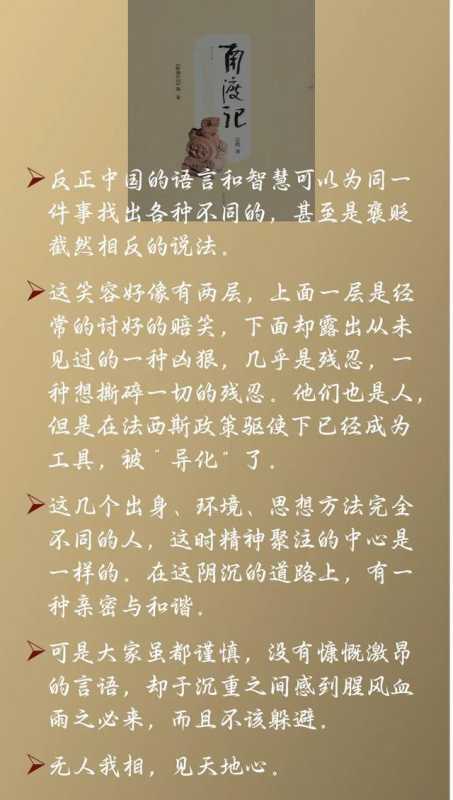 南渡记
反正中国的语言和智慧可以为同一
件事找出各种不同的，甚至是褒贬
截然相反的说法．
这笑容好像有两层，上面一层是经
常的讨好的赔笑，下面却露出从未
见过的一种凶狠，几乎是残忍，一
种想撕碎一切的残忍．他们也是人，
但是在法西斯政策驱使下已经成为
工具，被“异化”了．
这几个出身、环境、思想方法完全
不同的人，这时精神聚注的中心是
一样的．在这阴沉的道路上，有一
种亲密与和谐．
可是大家虽都谨慎，没有慷慨激昂
的言语，却于沉重之间感到腥风血
雨之必来，而且不该躲避．
无人我相，见天地心．